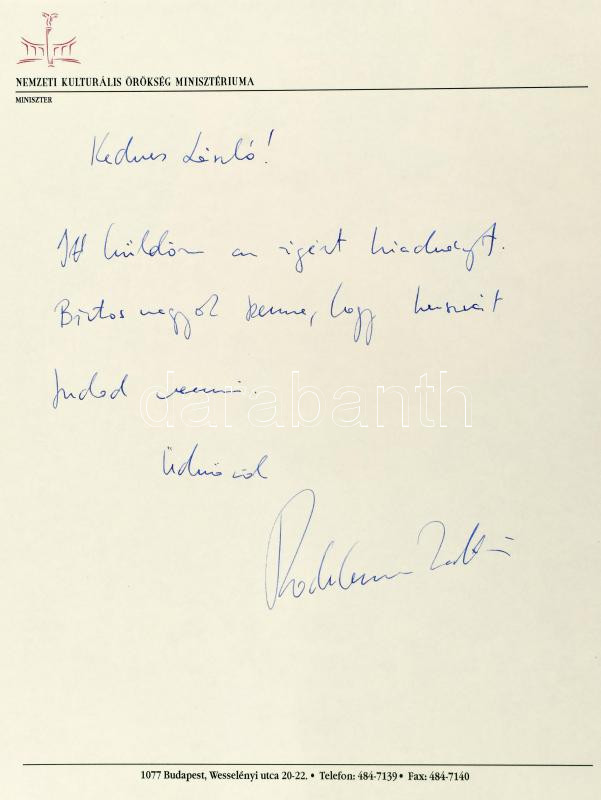 NEMZETI KULTURÁLIS ÖRÖKSÉG MINISZTÉRIUMA
MINISZTER
Kedves László!
Itt küldöm az ígért kiadványt.
Biztos vagyok benne, hogy hasznát
tudod venni.
Üdvözöl
Rockenbauer Zoltán
darabanth
1077 Budapest, Wesselényi utca 20-22. • Telefon: 484-7139 • Fax: 484-7140